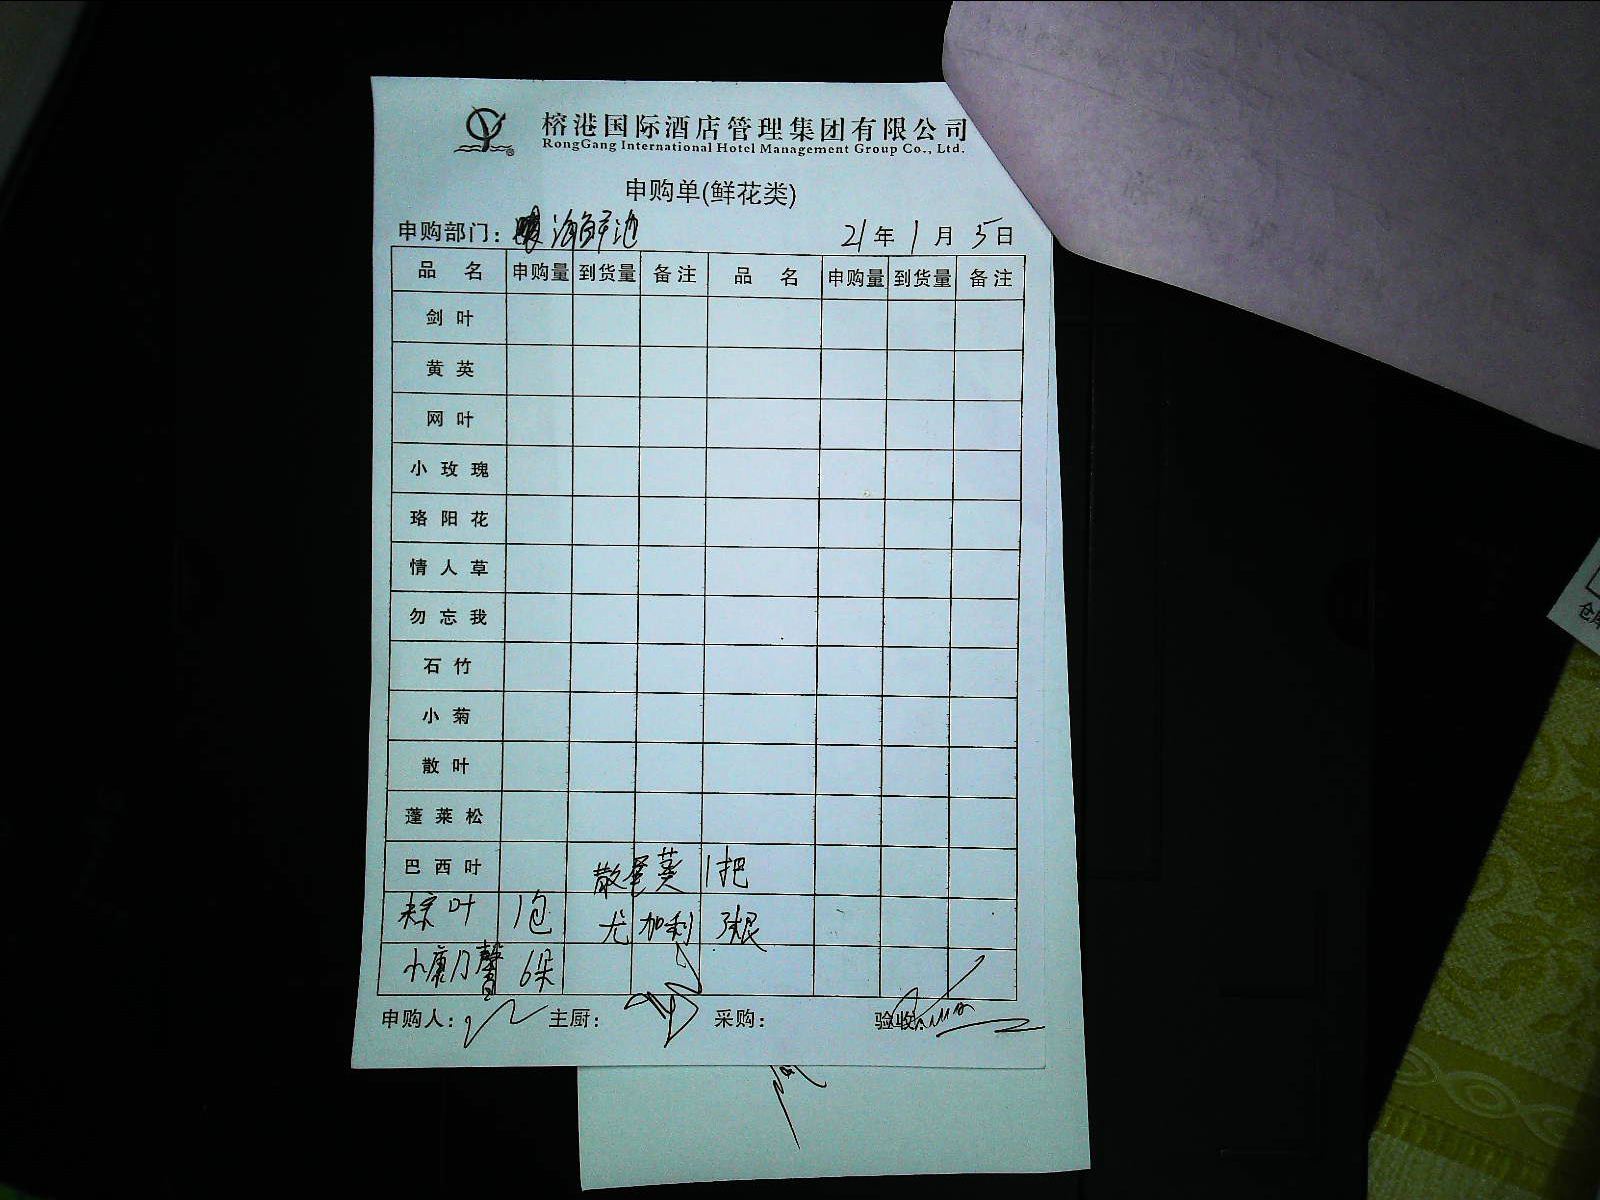 榕港国际酒店管理集团有限公司
RongGang International Hotel Management Group Co., Ltd.
申购单(鲜花类)
申购部门: 海鲜池 21年1月5日
品名 申购量 到货量 备注 品名 申购量 到货量 备注
剑叶
黄英
网叶
小玫瑰
珞阳花
情人草
勿忘我
石竹
小菊
散叶
蓬莱松
巴西叶 散尾葵 1把
粽叶 1包 尤加利 3根
小康乃馨 6朵
申购人: 主厨: 采购: 验收:
仓库